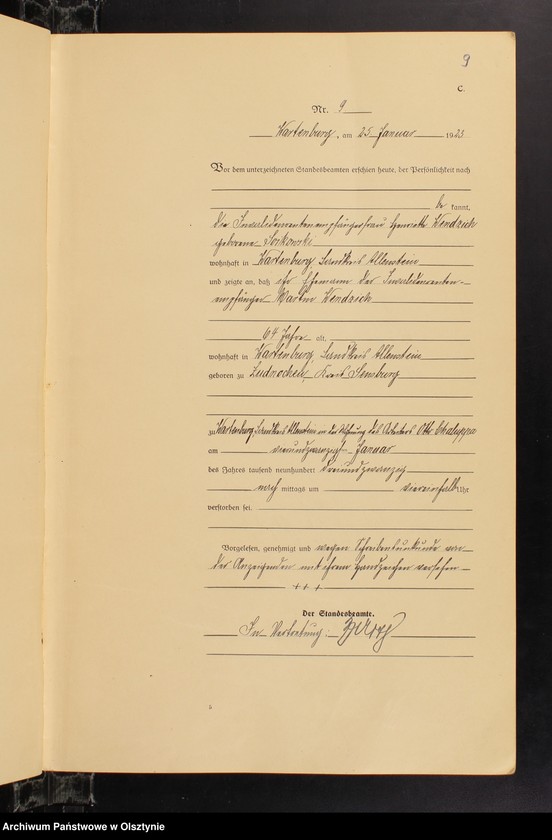 9
C.
Nr. 9
Wartenburg, am 25 Januar 1923
Vor dem unterzeichneten Standesbeamten erschien heute, der Persönlichkeit nach
be kannt,
die Invalidenrentenempfängerfrau Henriette Wendzich
geborene
wohnhaft in Wartenburg Landkreis Allenstein
und zeigte an, daß ihr Ehemann der Invalidenrenten-
empfänger Martin Wendzich
64 Jahre alt,
wohnhaft in Wartenburg Landkreis Allenstein
geboren zu Kreis Sensburg
zu Wartenburg, Landkreis Allenstein in der Wohnung des Arbeiters Otto Chaluppa
am vierundzwanzigsten Januar
des Jahres tausend neunhundert dreiundzwanzig
nach mittags um viereinhalb Uhr
verstorben sei.
Vorgelesen, genehmigt und wegen Schreibensunkunde von
der Anzeigenden mit ihrem Handzeichen versehen
+ + +
Der Standesbeamte.
In Vertretung:
5
Archiwum Państwowe w Olsztynie